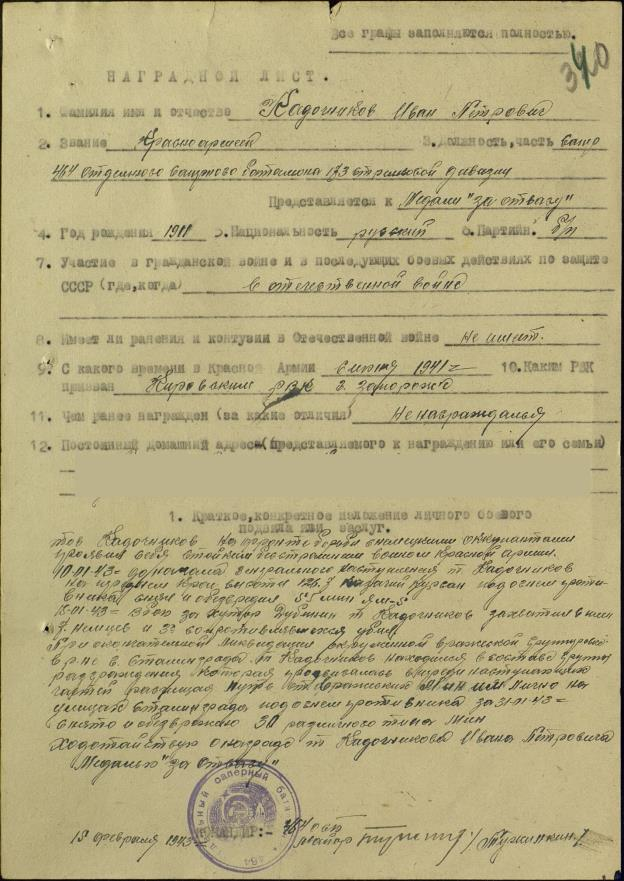 Все графы заполняются полностью.
340
НАГРАДНОЙ ЛИСТ.
1. Фамилия имя и отчество Кадочников Иван Петрович
2. Звание Красноармеец 3. Должность, часть сапер
464 отдельного саперного батальона 173 стрелковой дивизии
Представляется к Медали "за отвагу"
4. Год рождения 1911 5. Национальность русский 6. Партийн. б/п
7. Участие в гражданской войне и в последующих боевых действиях по защите
СССР (где, когда) в отечественной войне
8. Имеет ли ранения и контузии в Отечественной войне не имеет.
9. С какого времени в Красной Армии 1941 г 10. Каким РВК
призван Кировским рвк г. Запорожа
11. Чем ранее награжден (за какие отличия) Не награждался
12. Постоянный домашний адрес (представляемого к награждению или его семьи)
1. Краткое, конкретное изложение личного боевого
подвига или заслуг.
тов Кадочников на фронте борьбы с немецкими оккупантами
проявил себя стойким бесстрашным воином Красной армии.
10-01-43 = до начала генерального наступления т Кадочников
на переднем крае высоты 126,7 Курган под огнем проти-
вника снял и обезвредил 55 мин ЯМ-5
15-01-43 = В бою за хутор Дубинин т Кадочников захватил в плен
7 немцев и 3х сопротивлявшихся убил.
При окончательной ликвидации окруженной вражеской группировки
в р-не г. Сталинграда т Кадочников находился в составе группы
разграждения которая продвигалась впереди наступающих
частей расчищая путь от вражеских мин или Лично на
улицах г Сталинграда под огнем противника за 31-01-43 =
снято и обезврежено 30 различного типа мин
Ходотайствую о награде т Кадочникова Ивана Петровича
Медалью "за отвагу"
отдельный саперный бат
464
15 февраля 1943 КОМАНДИР:- 464 осб
майор /Тужилкин/